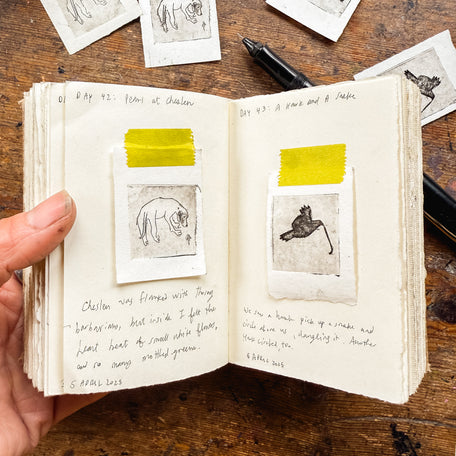 DAY 42: Peni at Cheslen
Cheslen was flanked with
barbarisms, but inside I felt the
heart beat of small white flowers,
and so many mottled greens.
5 APRIL 2025
DAY 43: A Hawk and A Snake
We saw a hawk pick up a snake and
circle above us, dangling it. Another
Hawk circled too.
6 APRIL 2025